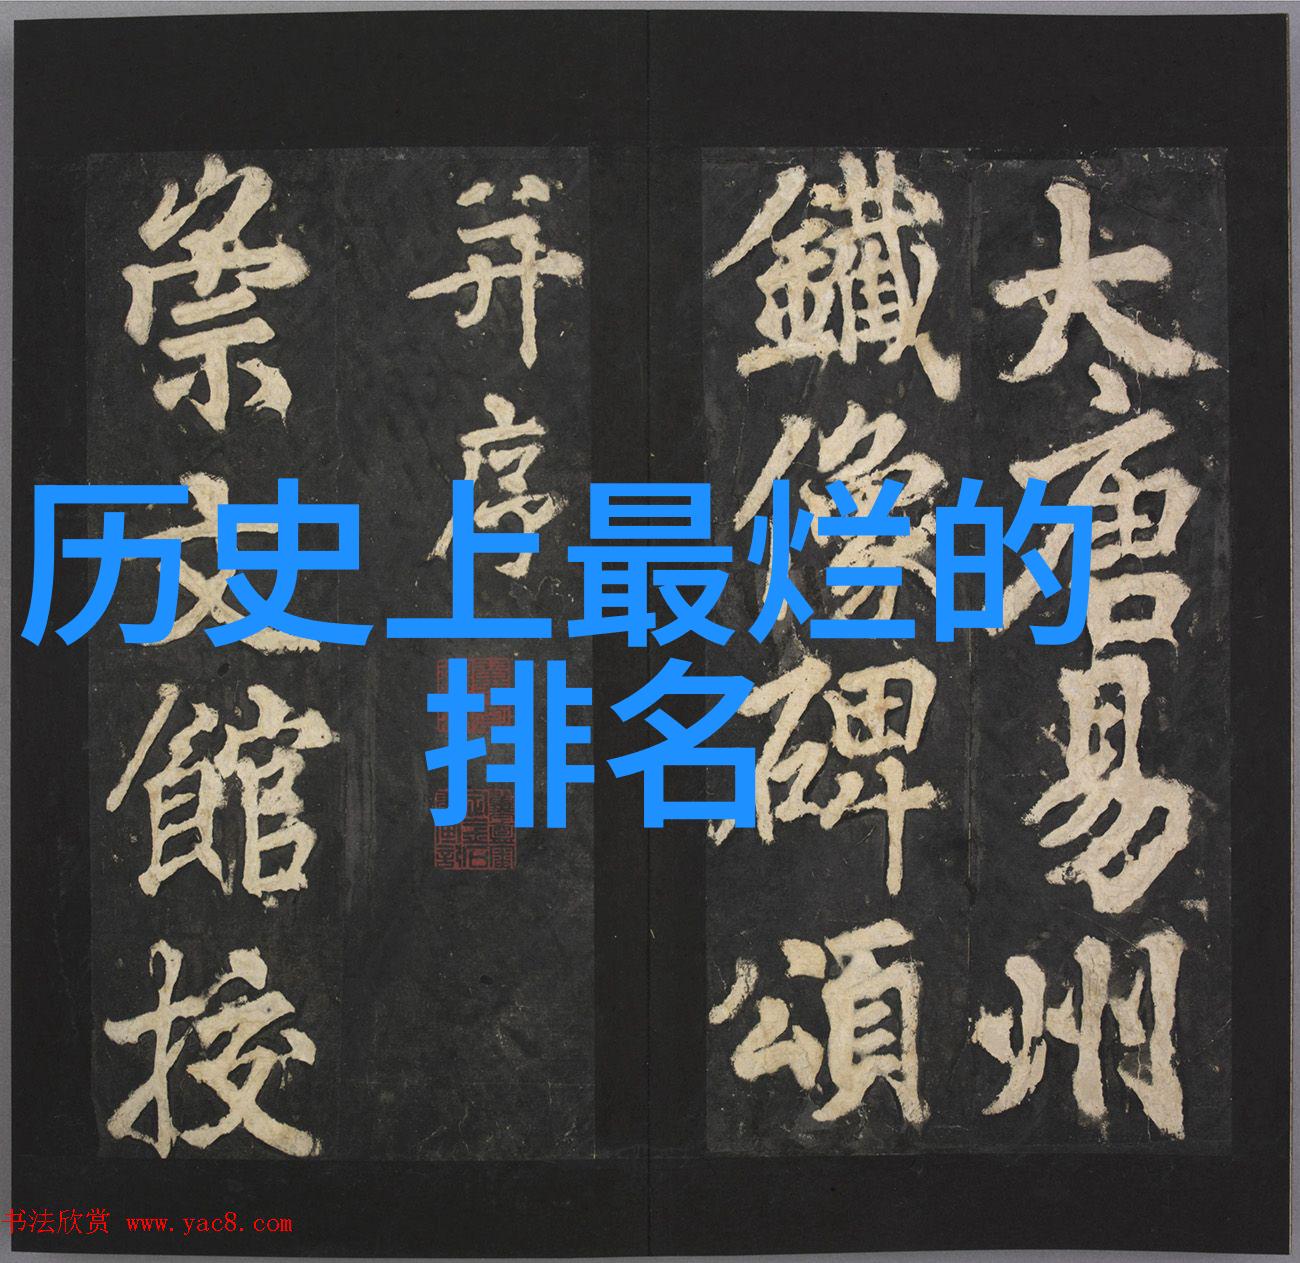 大唐易州
鐵像碑頌
并序
崇文館校
历史上最烂的
排名
书法欣赏 www.yac8.com